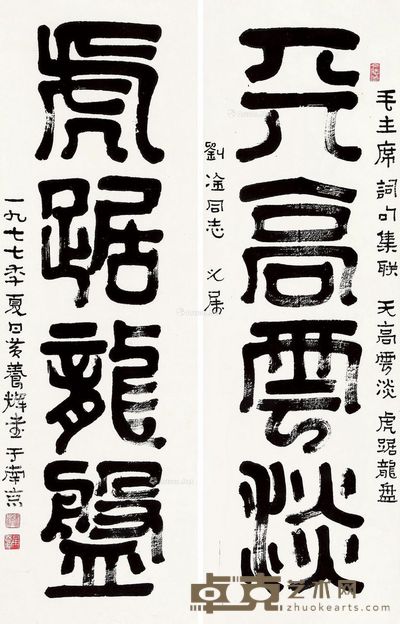 毛主席詞句集联 天高雲淡 虎踞龍盘
天高雲淡
劉淦同志
虎踞龍盤
一九七七年夏日黄養輝書于南京
卓克艺术网
zhuokearts.com